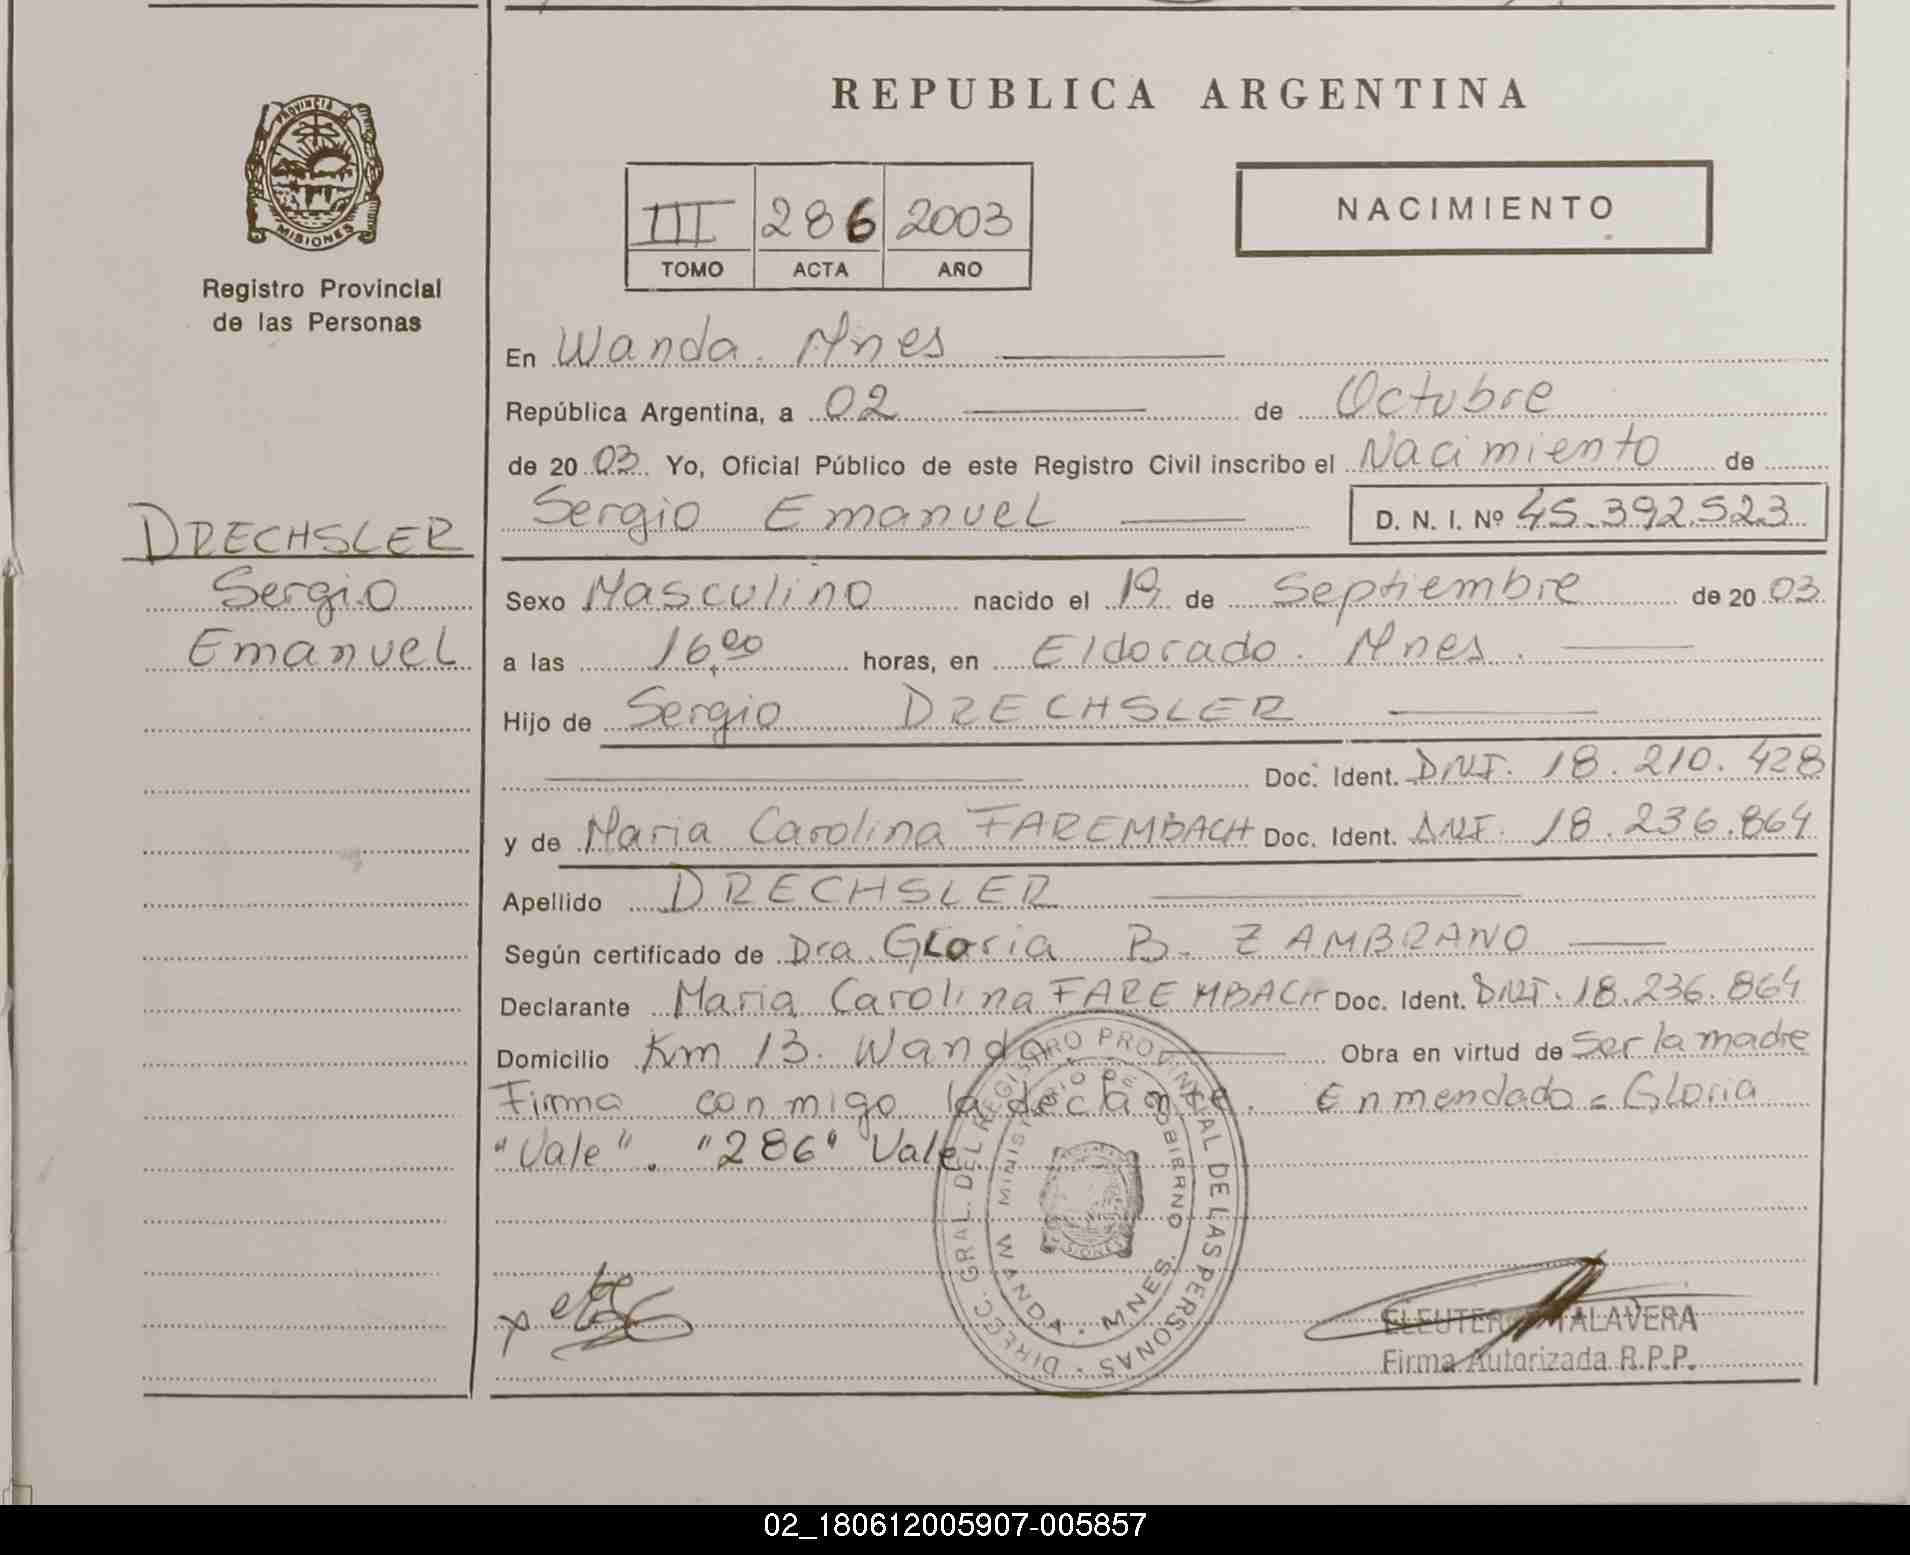 REPUBLICA ARGENTINA
PROVINCIA DE
MISIONES
Registro Provincial
de las Personas
III 286 2003
TOMO ACTA AÑO
NACIMIENTO
En Wanda. Mnes
República Argentina, a 02 de Octubre
de 2003 Yo, Oficial Público de este Registro Civil inscribo el Nacimiento de
Sergio Emanuel D. N. I. Nº 45.392.523
DRECHSLER
Sergio
Emanuel
Sexo Masculino nacido el 19 de Septiembre de 2003
a las 16,00 horas, en Eldorado. Mnes.
Hijo de Sergio DRECHSLER
Doc. Ident. DNI. 18.210.428
y de Maria Carolina FAREMBACH Doc. Ident. DNI. 18.236.864
Apellido DRECHSLER
Según certificado de Dra. Gloria B. ZAMBRANO
Declarante Maria Carolina FAREMBACH Doc. Ident. DNI. 18.236.864
Domicilio Km 13. Wanda. Obra en virtud de Ser la madre
Firma conmigo la declante. Enmendado = Gloria
"Vale". "286" Vale
DIRECC. GRAL. DEL REGISTRO PROVINCIAL DE LAS PERSONAS
MINISTERIO DE GOBIERNO
WANDA - MNES.
MISIONES
ELEUTERIO TALAVERA
Firma Autorizada R.P.P.
02_180612005907-005857